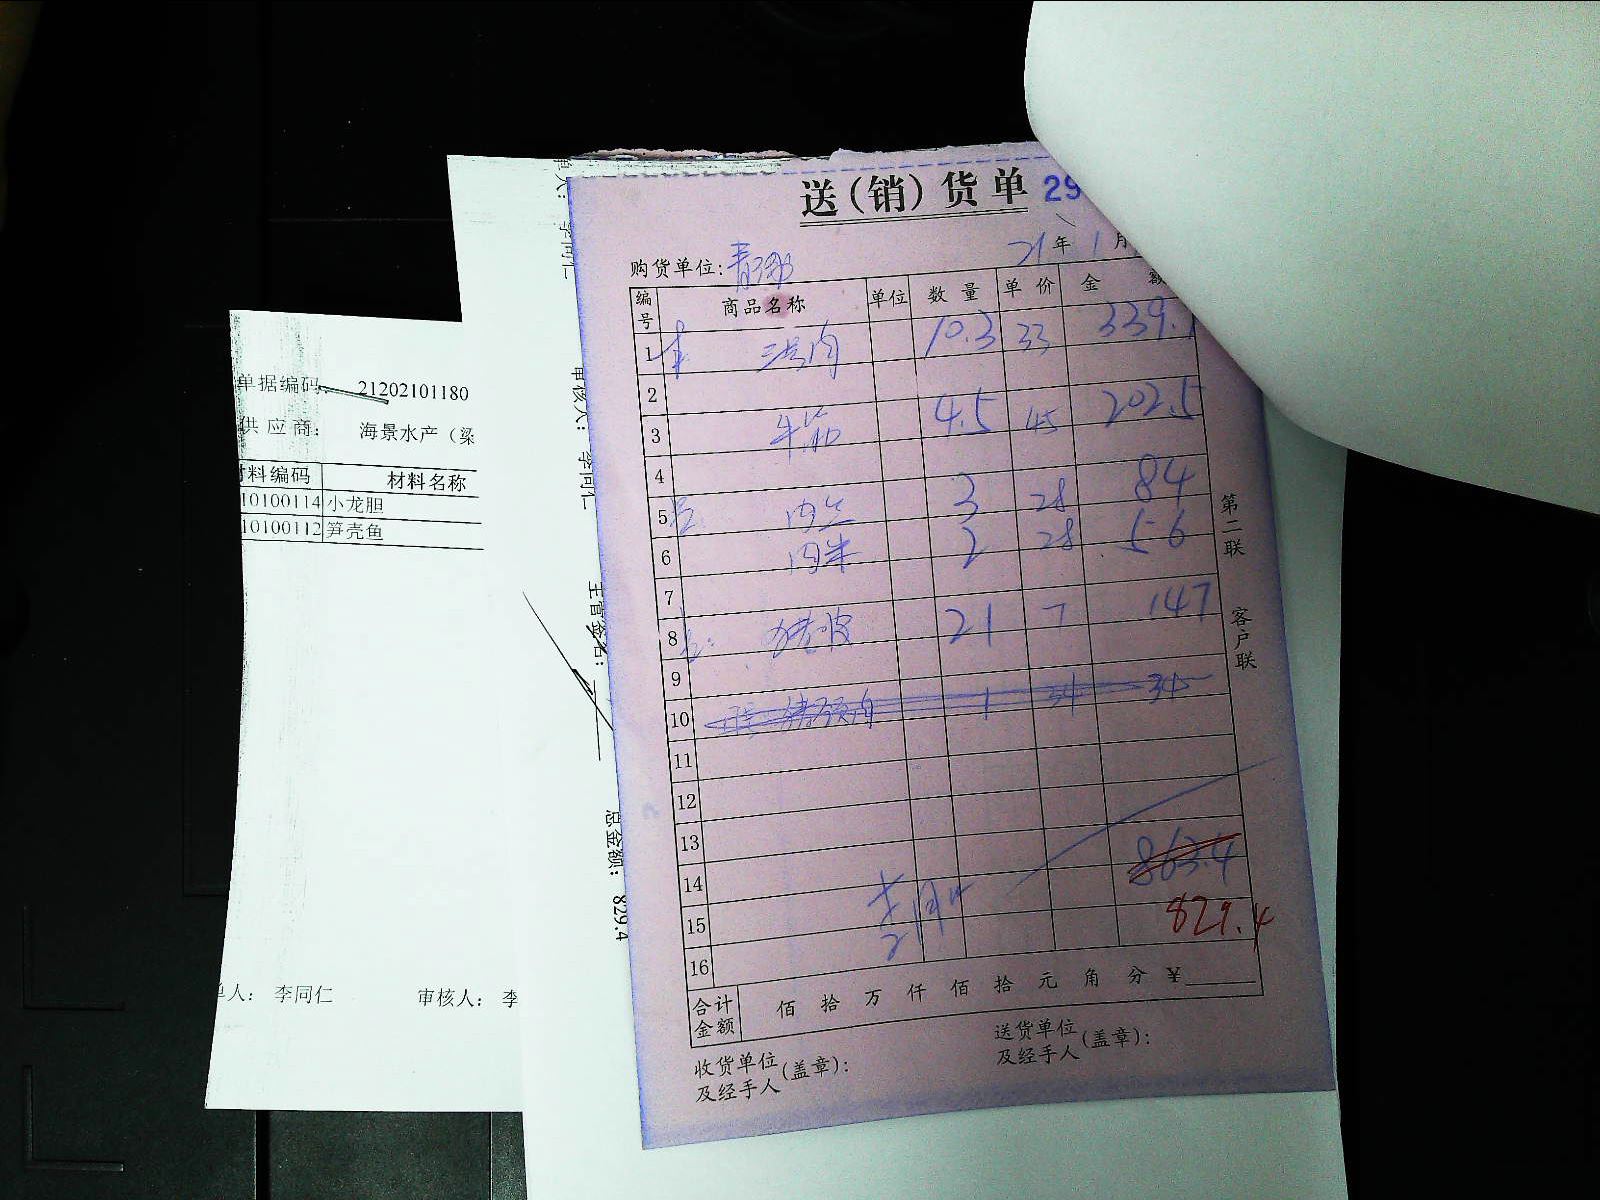 单据编码: 21202101180
供应商: 海景水产（梁
材料编码 材料名称
10100114 小龙胆
10100112 笋壳鱼
单人: 李同仁 审核人: 李
审核人: 李同仁
主管签名:
总金额: 829.4
送(销)货单 29
购货单位:
21年 1月
编号 商品名称 单位 数量 单价 金额
1 三号肉 10.3 33 339.
2
3 牛筋 4.5 45 202.5
4
5 肉 3 28 84
6 肉米 2 28 56
7
8 21 7 147
9
10 1 34 34
11
12
13
14 863.4
15 829.4
16
合计金额 佰 拾 万 仟 佰 拾 元 角 分 ¥
收货单位及经手人(盖章):
送货单位及经手人(盖章):
第二联 客户联